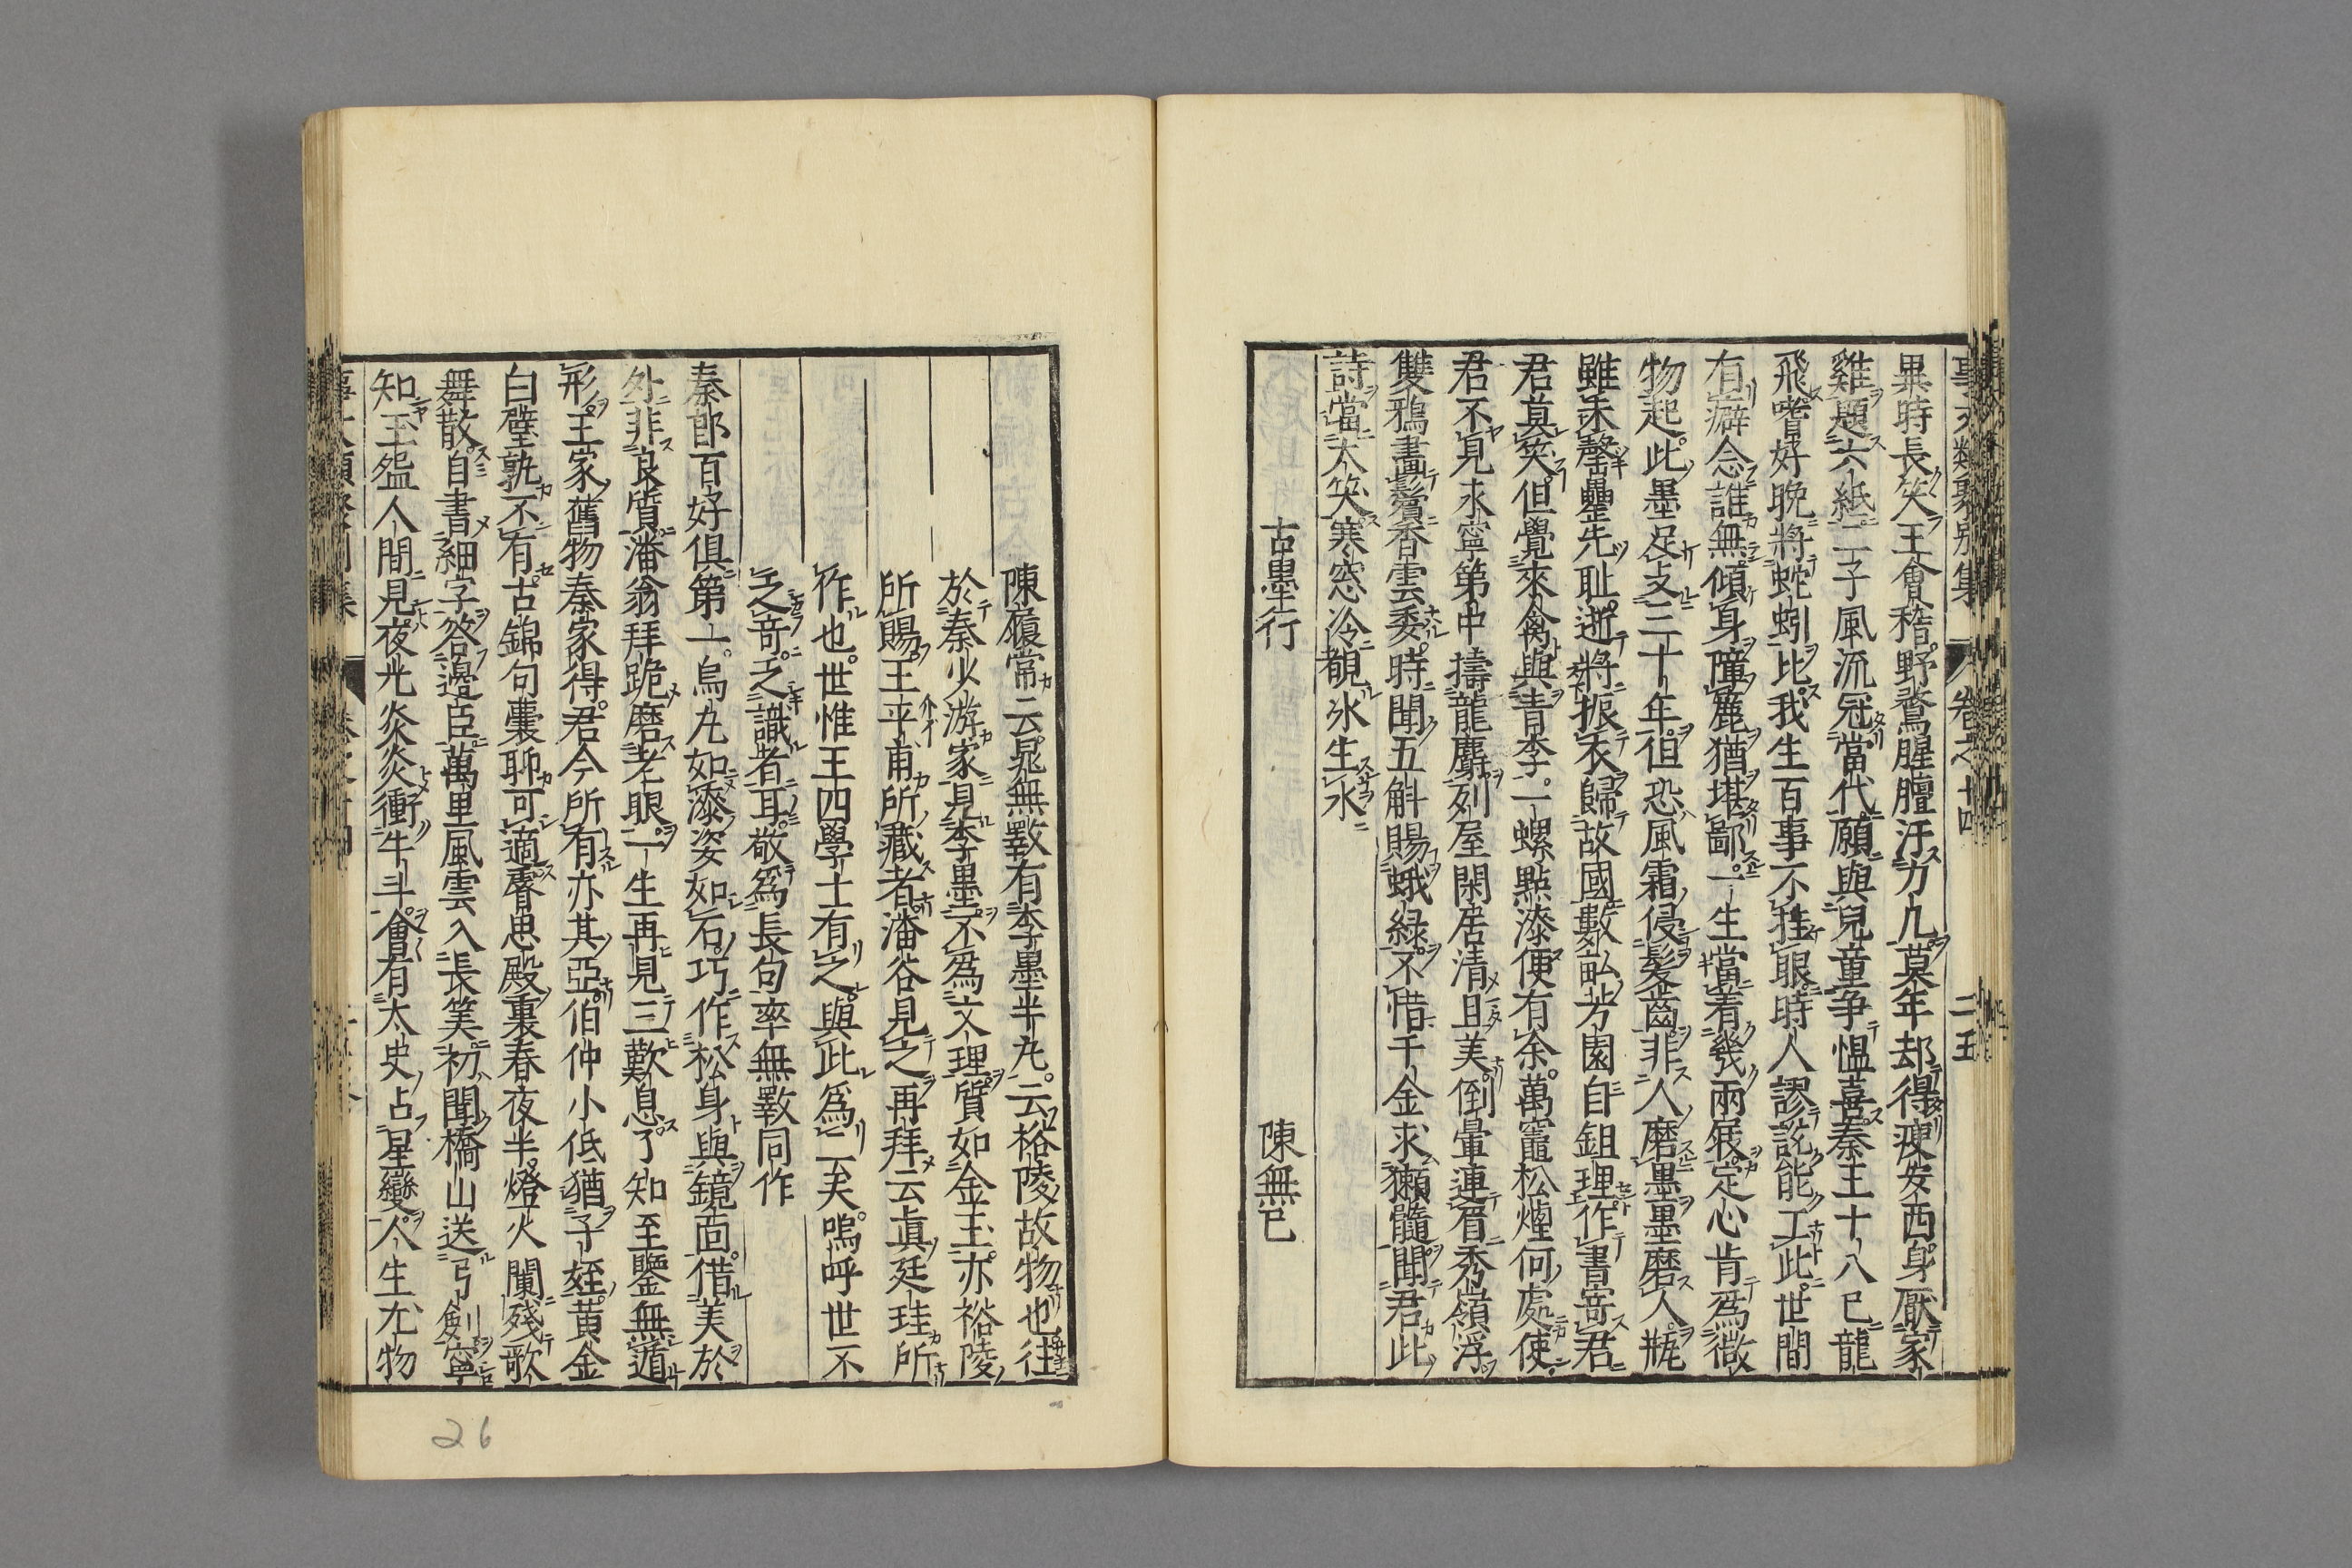 事文類聚別集 卷之十四 二五
異時長笑王會稽野鶩腥膻汙刀几莫年却得庾安西身厭家
雞題六紙二子風流冠當代願與兒童争慍喜秦王十八已龍
飛嗜好晚將蛇蚓比我生百事不挂眼時人謬說能工此世間
有癖念誰無傾身障簏猶堪鄙一生當着幾兩屐定心肯爲微
物起此墨足支三十年但恐風霜侵髮齒非人磨墨墨磨人瓶
雖未罄罍先耻逝將振衣歸故國數畝芳園自鉏理作書寄君
君莫笑但覓來禽與青李一螺點漆便有余萬竈松煙何處使
君不見永寧第中擣龍麝列屋閑居清且美倒暈連眉秀嶺浮
雙鴉畫鬢香雲委時聞五斛賜蛾緑不惜千金求獺髓聞君此
詩當大笑寒窓冷硯氷生水
古墨行 陳無已
陳履常云晁無斁有李墨半丸云裕陵故物也往
於秦少游家見李墨不爲文理質如金玉亦裕陵
所賜王平甫所藏者潘谷見之再拜云眞廷珪所
作也世惟王四學士有之與此爲二矣嗚呼世不
乏奇乏識者耳敬爲長句率無斁同作
秦郎百好俱第一烏丸如漆姿如石巧作松身與鏡面借美於
外非良質潘翁拜跪磨老眼一生再見三歎息了知至鑒無遁
形王家舊物秦家得君今所有亦其亞伯仲小低猶子姪黄金
白璧孰不有古錦句囊聊可適睿思殿裏春夜半燈火闌殘歌
舞散自書細字答邊臣萬里風雲入長筭初聞橋山送弓劍寧
知玉盌人間見夜光炎炎衝牛斗會有太史占星變人生尤物
26